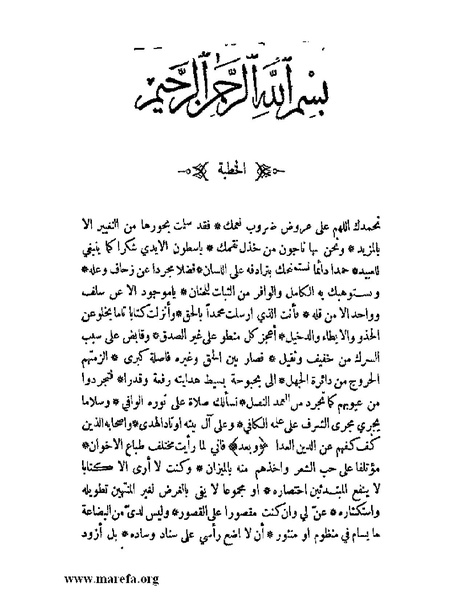 بسم الله الرحمن الرحيم
الخطبة
نحمدك اللهم على عروض ضروب نعمك * فقد سلمت بحورها من التغيير الا
بالمزيد * ونحن بها ناجون من خذل نقمك * باسطون الايدي شكرا كما ينبغي
للعبيد * حمدا دائما نستمنحك بترادفه على اللسان * فضلا مجردا عن زحاف وعله *
ونستوهبك به الكامل والوافر من الثبات للجنان * ياموجود الا عن سلف
وواحد الا من قله * فأنت الذي ارسلت محمداً بالحق * وأنزلت كتابا تاما يخلو عن
الحذو والايطاء والدخيل * أعجز كل منطو على غير الصدق * وقابض على سبب
الشرك من خفيف وثقيل * فصار بين الحق وغيره فاصلة كبرى * الزمتهم
الخروج من دائرة الجهل * الى بحبوحة بسيط هدايته رفعة وقدرا * فتجردوا
من عيوبهم كما تجرد من الغمد النصل * نسألك صلاة على نوره الوافي * وسلاما
يجري مجرى الشرف على الكافي * وعلى آل بيته اوتاد الهدى * واصحابه الذين
كف كفهم عن الدين العدا ﴿وبعد﴾ فاني لما رأيت مختلف طباع الاخوان *
مؤتلفا على حب الشعر واخذهم منه بالميزان * وكنت لا أرى الا كتابا
لا ينتفع المبتدئين اختصاره * او مجموعا لا يفي بالغرض لغير المنتهين تطويله
واستكثاره * عنّ لي وان كنت مقصورا على القصور * وليس لديّ من البضاعة
ما يسام في منظوم او منثور * أن لا اضع رأسي على سناد وساده * بل أزود
www.marefa.org